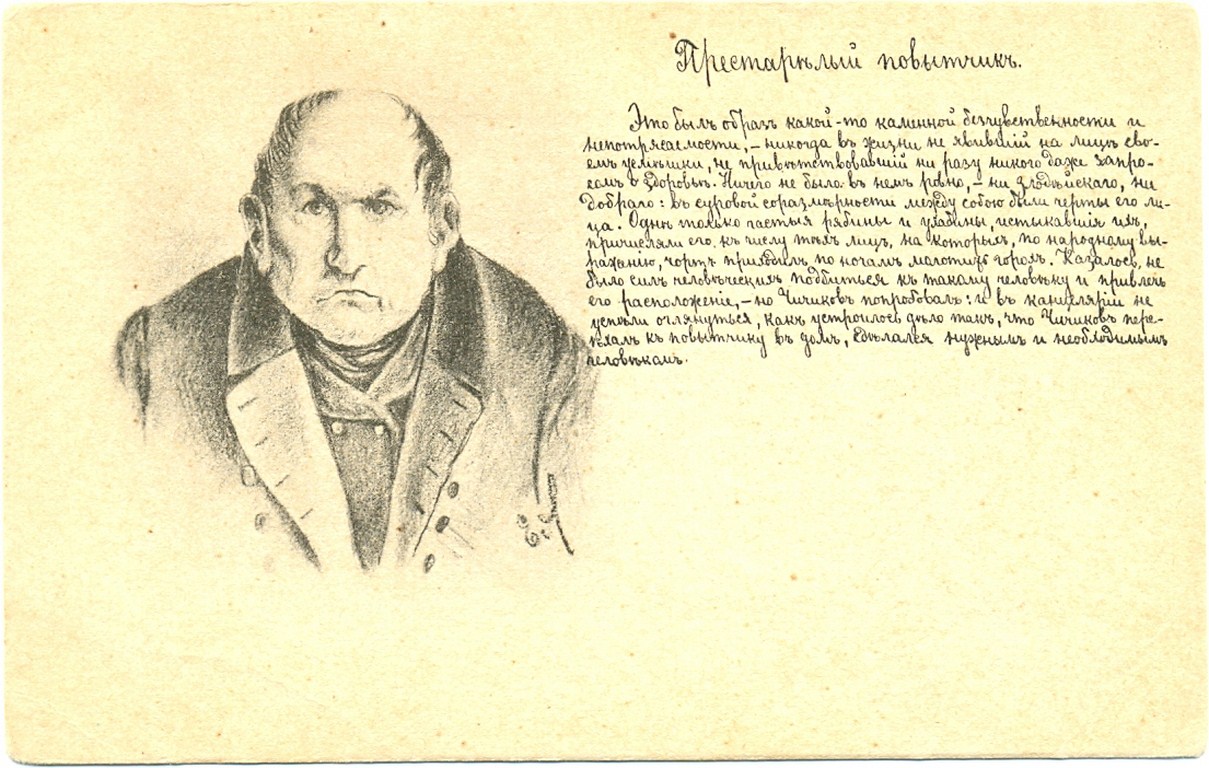 Престарѣлый повытчикъ.
Это былъ образъ какой-то каменной безчувственности и
непотрясаемости, – никогда въ жизни не явившій на лицѣ сво-
емъ усмѣшки, не привѣтствовавшій ни разу никого даже запро-
сомъ о здоровьѣ. Ничего не было въ немъ ровно, – ни злодѣйскаго, ни
добраго: въ суровой соразмѣрности между собою были черты его ли-
ца. Однѣ только частыя рябины и ухабины, истыкавшія ихъ,
причисляли его къ числу тѣхъ лицъ, на которыхъ, по народному вы-
раженію, чортъ приходилъ по ночамъ молотить горохъ. Казалось, не
было силъ человѣческихъ подбиться къ такому человѣку и привлечь
его расположеніе, – но Чичиковъ попробовалъ: и въ канцеляріи не
успѣли оглянуться, какъ устроилось дѣло такъ, что Чичиковъ пере-
ѣхалъ къ повытчику въ домъ, сдѣлался нужнымъ и необходимымъ
человѣкомъ.